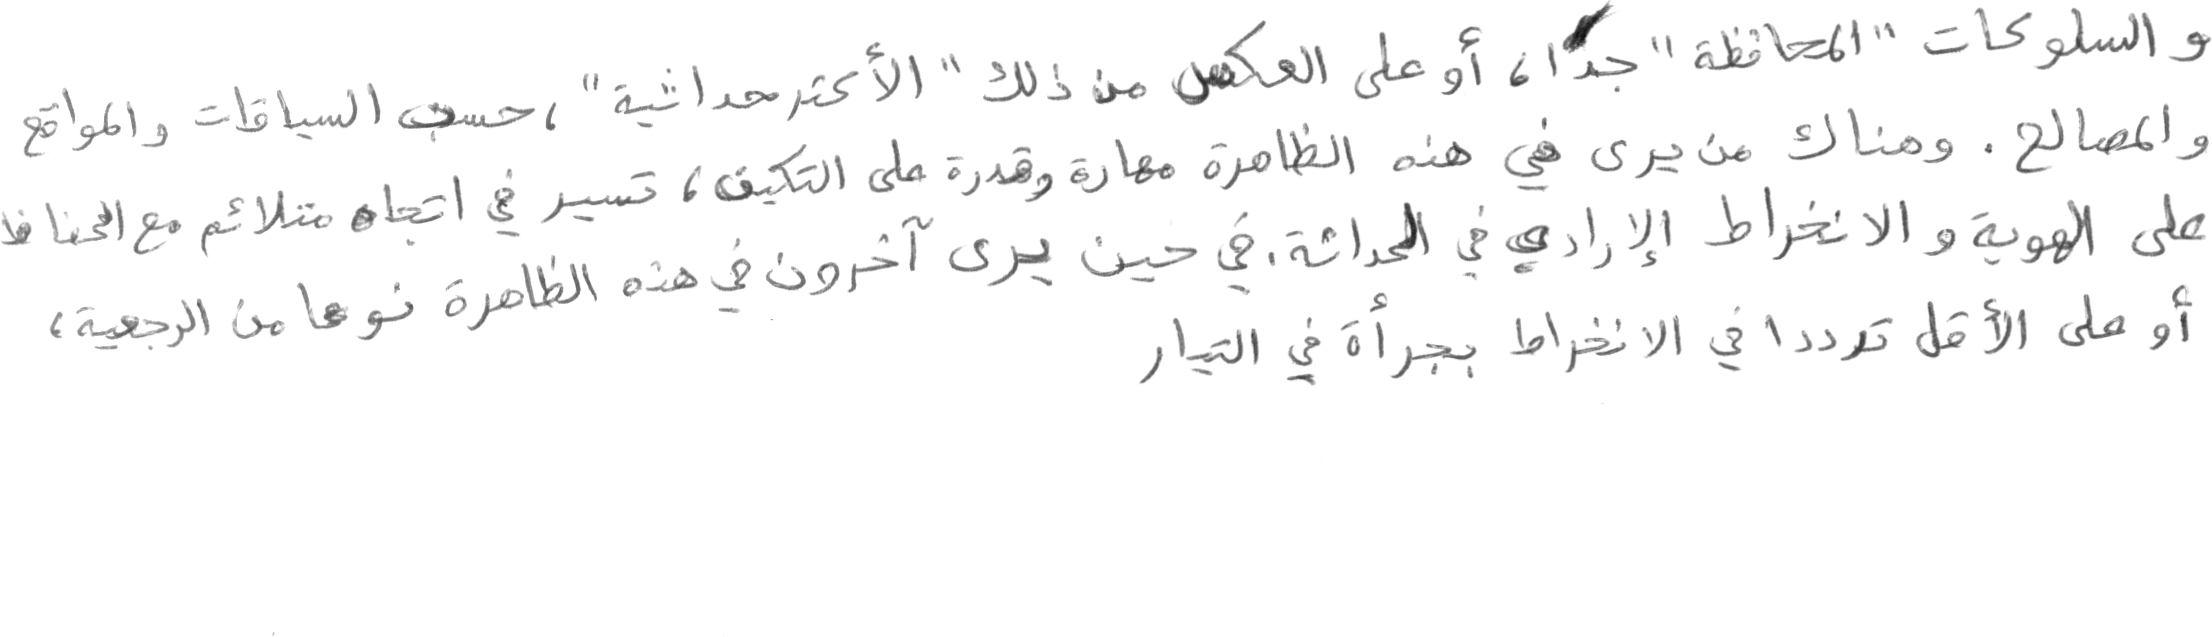 و السلوكات "المحافظة" جدًا، أو على العكس من ذلك "الأكثر حداثية"، حسب السياقات والمواقع
والمصالح. وهناك من يرى في هذه الظاهرة مهارة وقدرة على التكيف، تسير في اتجاه متلائم مع الحفاظ
على الهوية و الانخراط الإرادي في الحداثة. في حين يرى آخرون في هذه الظاهرة نوعا من الرجعية،
أو على الأقل ترددا في الانخراط بجرأة في التيار